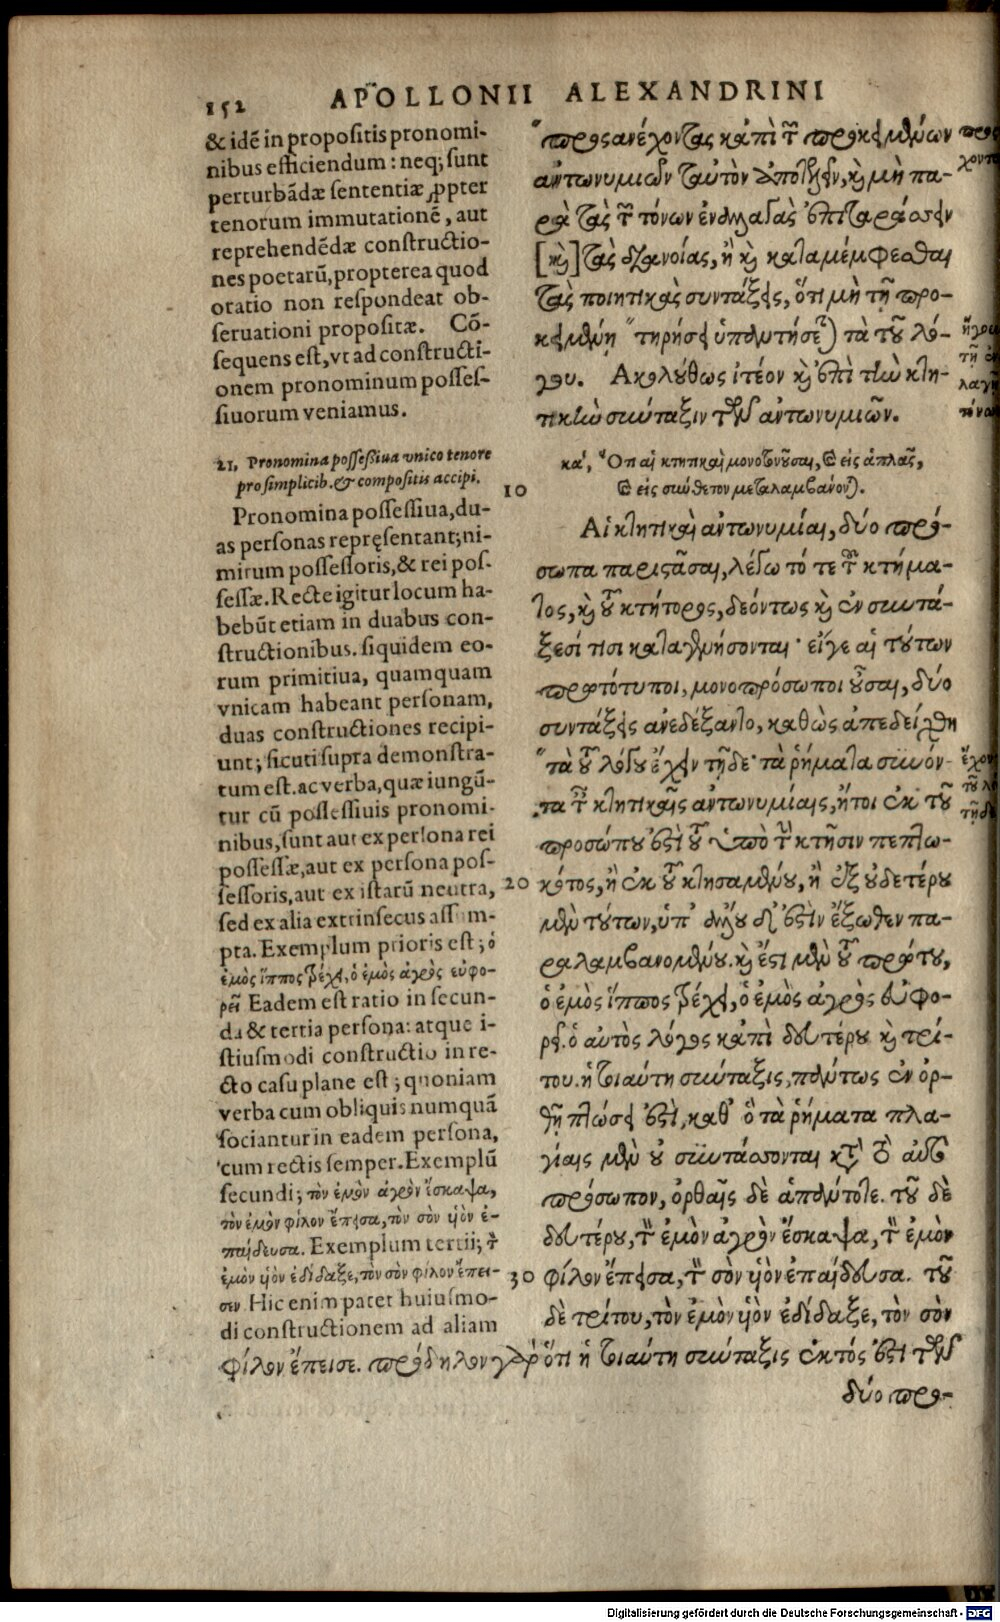 152 APOLLONII ALEXANDRINI
& idē in propositis pronomi-
nibus efficiendum: neq; sunt
perturbādæ sententiæ ꝓpter
tenorum immutationē, aut
reprehendēdæ constructio-
nes poetarū, propterea quod
oratio non respondeat ob-
seruationi propositæ. Cō-
sequens est, vt ad constructi-
onem pronominum posses-
siuorum veniamus.
21. Pronomina possessiua vnico tenore
pro simplicib. & compositis accipi.
Pronomina possessiua, du-
as personas repręsentant; ni-
mirum possessoris, & rei pos-
sessæ. Recte igitur locum ha-
bebūt etiam in duabus con-
structionibus. siquidem eo-
rum primitiua, quamquam
vnicam habeant personam,
duas constructiones recipi-
unt; sicuti supra demonstra-
tum est. ac verba, quæ iungū-
tur cū possessiuis pronomi-
nibus, sunt aut ex persona rei
possessæ, aut ex persona pos-
sessoris, aut ex istarū neutra,
sed ex alia extrinsecus assum-
pta. Exemplum prioris est; ὁ
ἐμὸς ἵππος τρέχει, ὁ ἐμὸς ἀγρὸς εὐφο-
ρεῖ Eadem est ratio in secun-
da & tertia persona: atque i-
stiusmodi constructio in re-
cto casu plane est; quoniam
verba cum obliquis numquā
socianturin eadem persona,
cum rectis semper. Exemplū
secundi; τὸν ἐμὸν ἀγρὸν ἔσκαψα,
τὸν ἐμὸν φίλον ἔπεισα, τὸν σὸν υἱὸν ἐ-
παίδευσα. Exemplum tertii; τὸν
ἐμὸν υἱὸν ἐδίδαξε, τὸν σὸν φίλον ἔπει-
σεν Hic enim patet huiusmo-
di constructionem ad aliam
"προσανέχοντας κἀπὶ τῶν προκειμένων
ἀντωνυμιῶν ταὐτὸν ἀποτελεῖν, καὶ μὴ πα-
ρὰ τὰς τῶν τόνων ἐναλλαγὰς ἐπιταράσσειν
[καὶ] τὰς διανοίας, ἢ καὶ καταμέμφεσθαι
τὰς ποιητικὰς συντάξεις, ὅτι μὴ τῇ προ-
κειμένῃ "τηρήσει ὑπαντήσεται τὰ τοῦ λό-
γου. Ακολούθως ἰτέον καὶ ἐπὶ τὴν κτη-
τικὴν σύνταξιν τῶν ἀντωνυμιῶν.
κα΄, Ὅτι αἱ κτητικαὶ μονοτονοῦσαι, καὶ εἰς ἁπλᾶς,
10 καὶ εἰς σύνθετον μεταλαμβάνονται.
Αἱ κτητικαὶ ἀντωνυμίαι, δύο πρό-
σωπα παριστᾶσαι, λέγω τό τε τοῦ κτήμα-
τος, καὶ τοῦ κτήτορος, δεόντως καὶ ἐν συντά-
ξεσί τισι καταγενήσονται· εἴγε αἱ τούτων
πρωτότυποι, μονοπρόσωποι οὖσαι, δύο
συντάξεις ἀνεδέξαντο, καθὼς ἀπεδείχθη
"τὰ τοῦ λόγου ἔχειν τῇδε· τὰ ῥήματα συνιόν-
τα ταῖς κτητικαῖς ἀντωνυμίαις, ἤτοι ἐκ τοῦ
προσώπου ἐστὶ τοῦ ὑπὸ τὴν κτῆσιν πεπτω-
20 κότος, ἢ ἐκ τοῦ κτησαμένου, ἢ ἐξ οὐδετέρου
μὲν τούτων, ὑπ' ἄλλου δέ ἐστιν ἔξωθεν πα-
ραλαμβανομένου. καὶ ἔστι μὲν τοῦ πρώτου,
ὁ ἐμὸς ἵππος τρέχει, ὁ ἐμὸς ἀγρὸς εὐφο-
ρεῖ. ὁ αὐτὸς λόγος κἀπὶ δευτέρου καὶ τρί-
του. ἡ τοιαύτη σύνταξις, πάντως ἐν ὀρ-
θῇ πτώσει ἐστὶ, καθ' ὃ τὰ ῥήματα πλα-
γίαις μὲν οὐ συντάσσονται κατὰ τὸ αὐτὸ
πρόσωπον, ὀρθαῖς δὲ ἁπάντοτε. τοῦ δὲ
δευτέρου, τὸν ἐμὸν ἀγρὸν ἔσκαψα, τὸν ἐμὸν
30 φίλον ἔπεισα, τὸν σὸν υἱὸν ἐπαίδευσα. τοῦ
δὲ τρίτου, τὸν ἐμὸν υἱὸν ἐδίδαξε, τὸν σὸν
φίλον ἔπεισε. πρόδηλον γὰρ ὅτι ἡ τοιαύτη σύνταξις ἐκτός ἐστι τῶν
δύο προ-
Digitalisierung gefördert durch die Deutsche Forschungsgemeinschaft - DFG